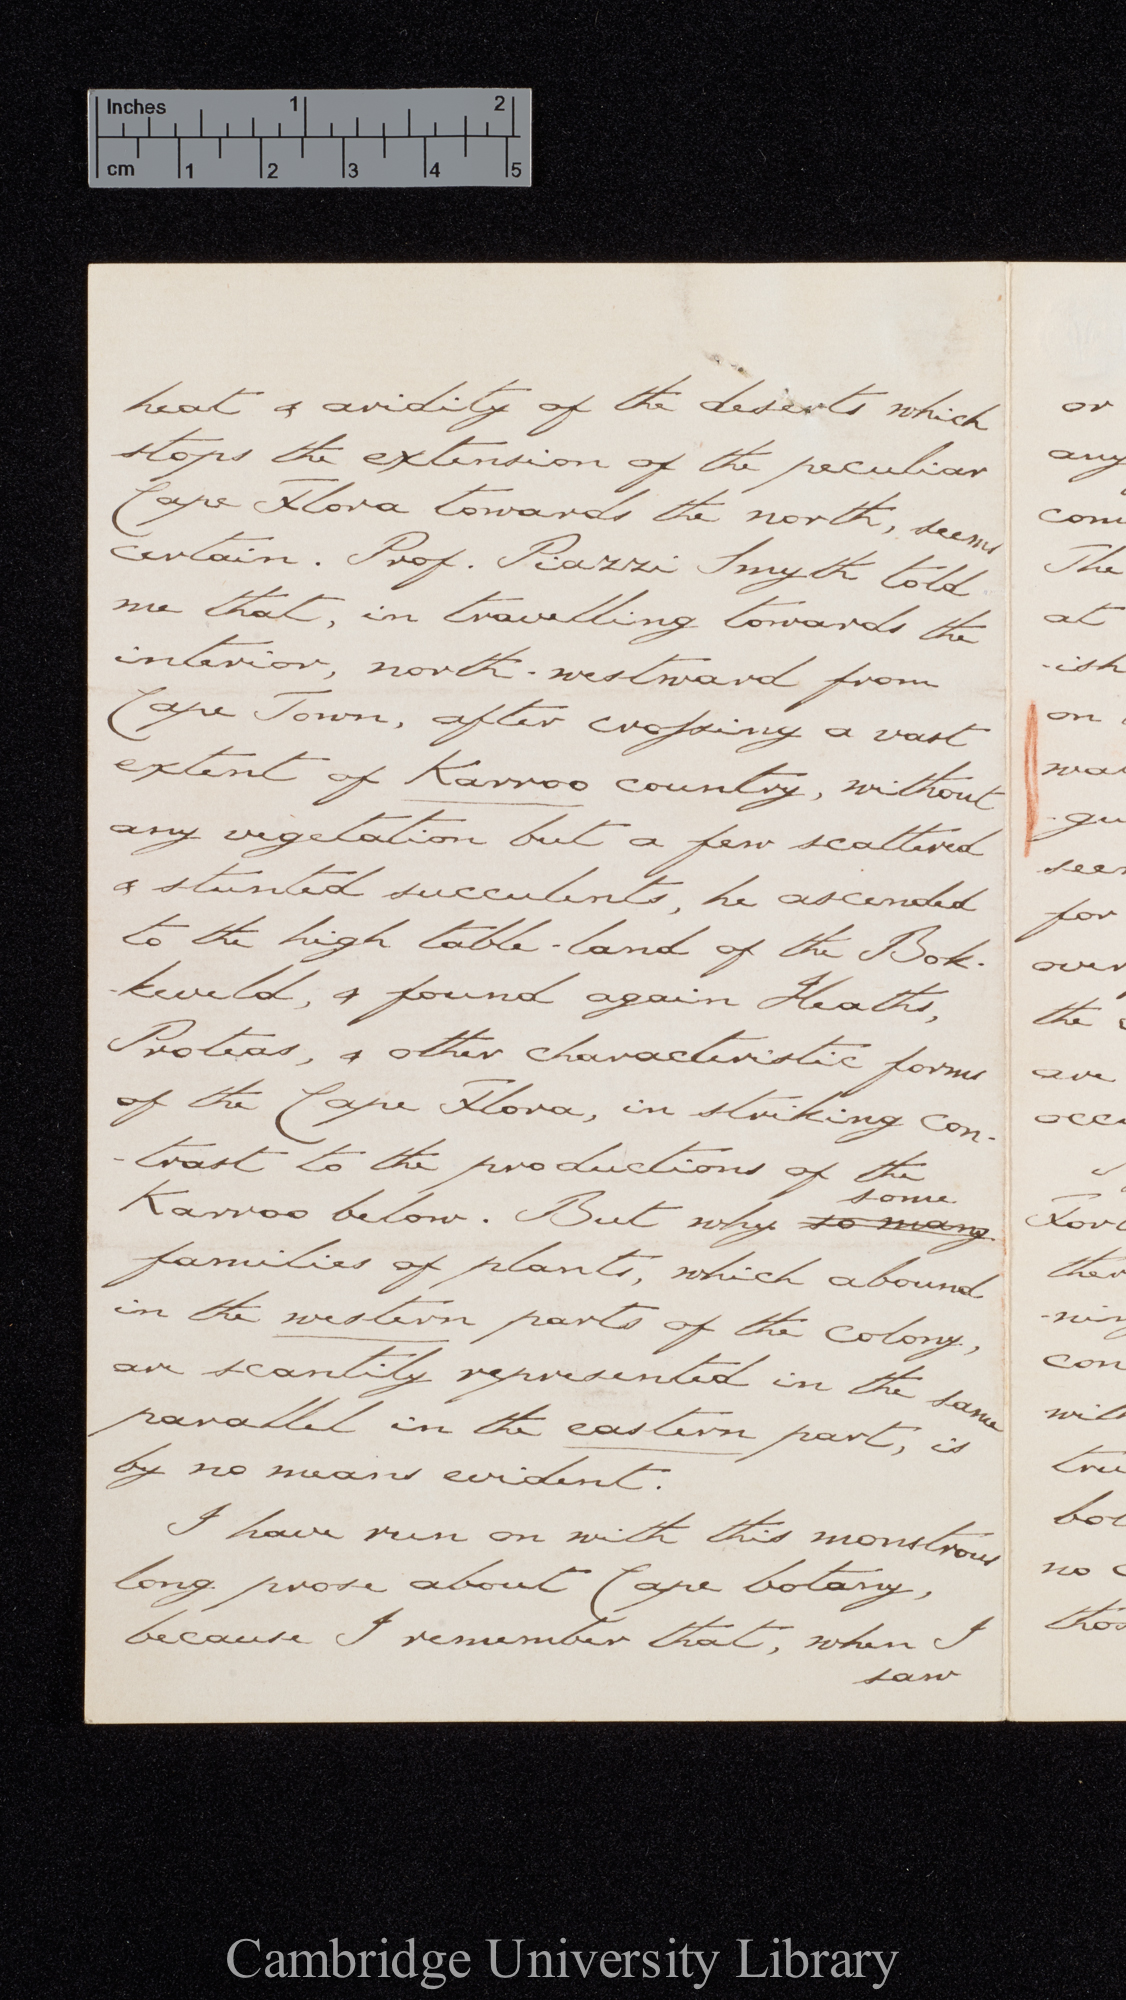 Inches 1 2
cm 1 2 3 4 5
heat & aridity of the deserts which
stops the extension of the peculiar
Cape Flora towards the north, seems
certain. Prof. Piazzi Smyth told
me that, in travelling towards the
interior, north-westward from
Cape Town, after crossing a vast
extent of Karroo country, without
any vegetation but a few scattered
& stunted succulents, he ascended
to the high table-land of the Bok-
-keveld, & found again Heaths,
Proteas, & other characteristic forms
of the Cape Flora, in striking con-
-trast to the productions of the
some
Karroo below. But why so many
families of plants, which abound
in the western parts of the colony,
are scantily represented in the same
parallel in the eastern part, is
by no means evident.
I have run on with this monstrous
long prose about Cape botany,
because I remember that, when I
saw
or
any
com
The
at
-ish
on
wa
-gu
see
for
over
the
are
occ
For
ther
-nin
con
with
tru
bo
no
thos
Cambridge University Library